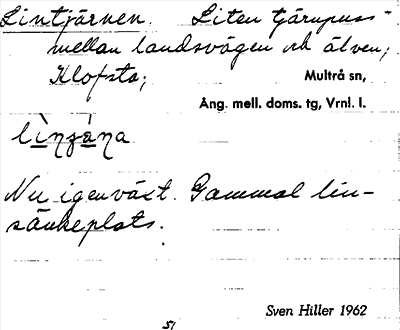 Lintjärnen. Liten tjärnpuss
mellan landsvägen och älven;
Klofsta; Multrå sn,
Ång. mell. doms. tg, Vrnl. l.
Nu igenväxt. Gammal lin-
sänkeplats.
51
Sven Hiller 1962